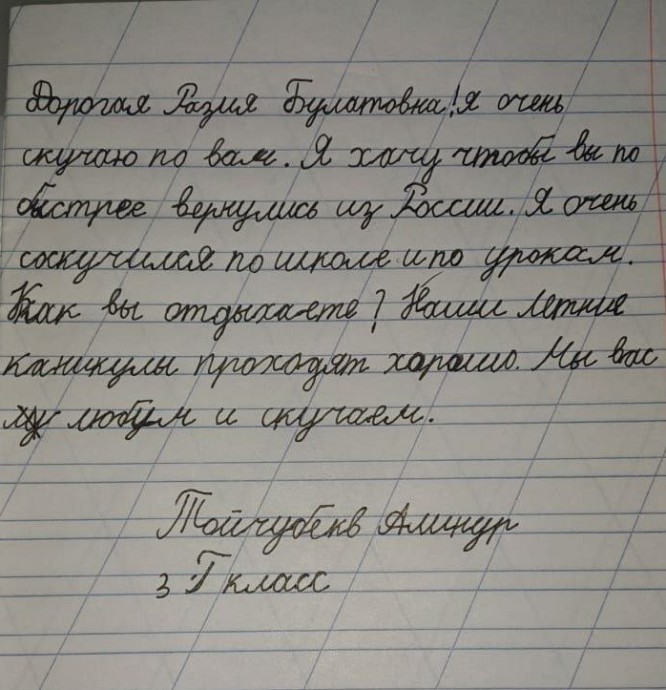 Дорогая Разия Булатовна! Я очень
скучаю по вам. Я хачу чтобы вы по
быстрее вернулись из России. Я очень
соскучился по школе и по урокам.
Как вы отдыхаете? Наши летние
каникулы проходят хорошо. Мы вас
любим и скучаем.
Тойчубекв Алинур
3 Г класс